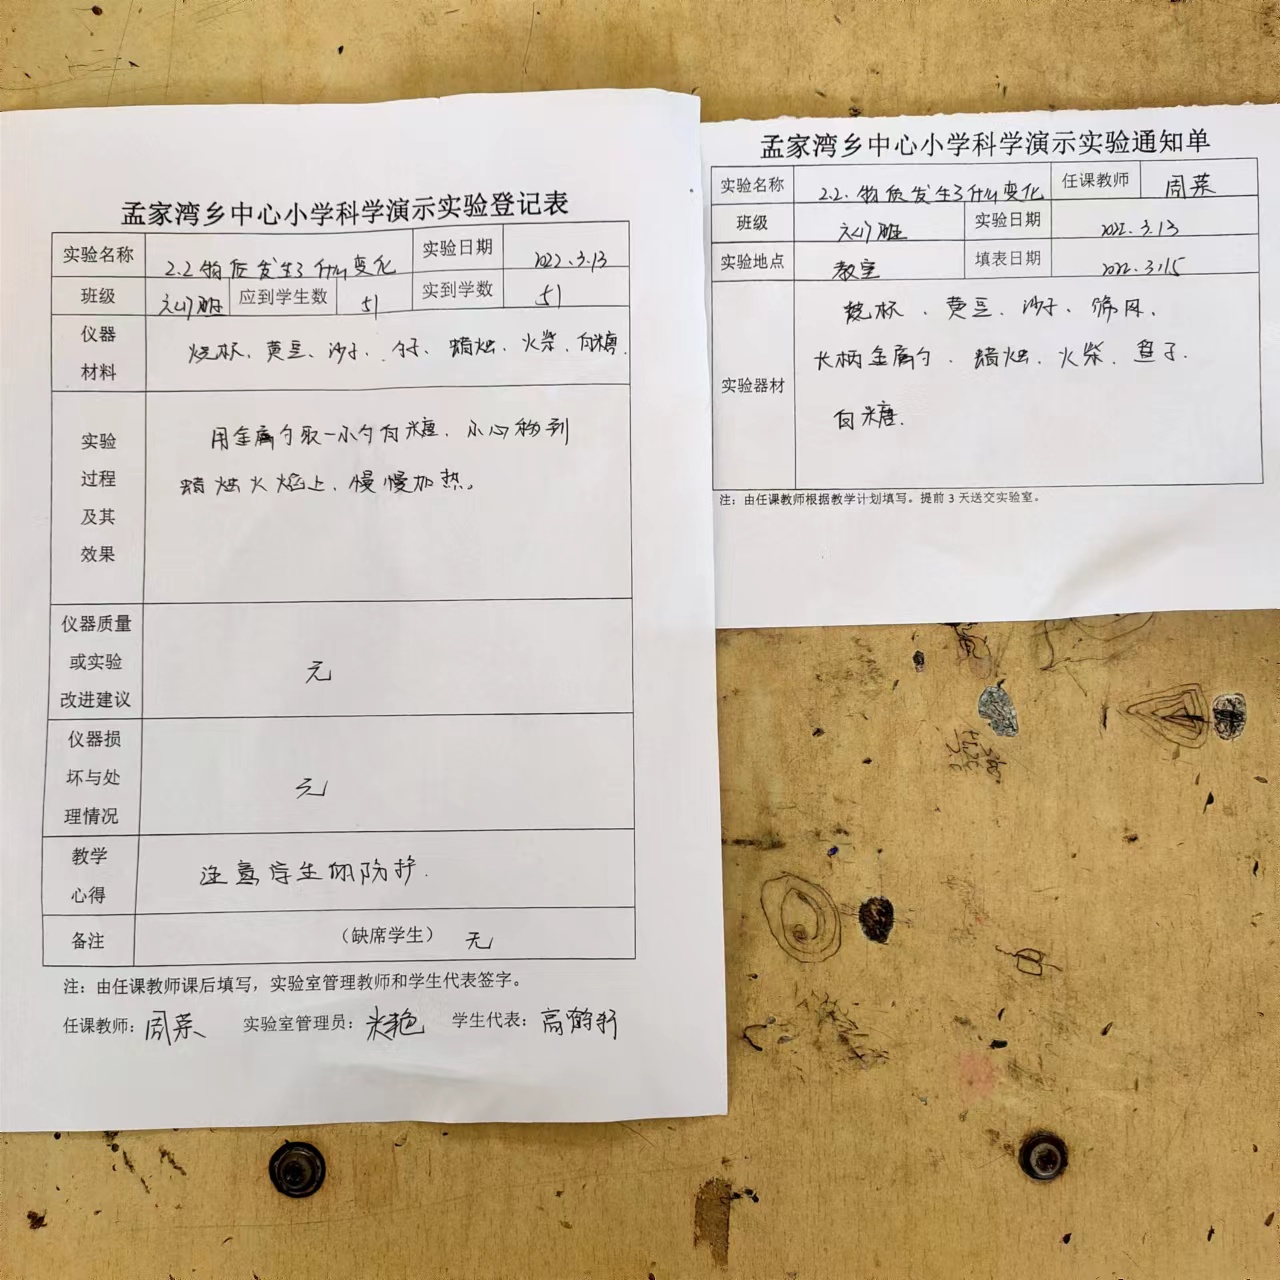 孟家湾乡中心小学科学演示实验登记表
实验名称 2.2物质发生了什么变化 实验日期 2022.3.13
班级 六(1)班 应到学生数 51 实到学数 51
仪器
材料
烧杯、黄豆、沙子、勺子、蜡烛、火柴、白糖.
实验
过程
及其
效果
用金属勺取一小勺白糖、小心移到
蜡烛火焰上、慢慢加热。
仪器质量
或实验
改进建议
无
仪器损
坏与处
理情况
无
教学
心得
注意学生的防护.
备注 (缺席学生) 无
注：由任课教师课后填写，实验室管理教师和学生代表签字。
任课教师：周菜 实验室管理员： 学生代表：
孟家湾乡中心小学科学演示实验通知单
实验名称 2.2.物质发生了什么变化 任课教师 周菜
班级 六(1)班 实验日期 2022.3.13
实验地点 教室 填表日期 2022.3.15
实验器材
烧杯、黄豆、沙子、筛网、
长柄金属勺、蜡烛、火柴、盘子.
白糖.
注：由任课教师根据教学计划填写。提前3天送交实验室。